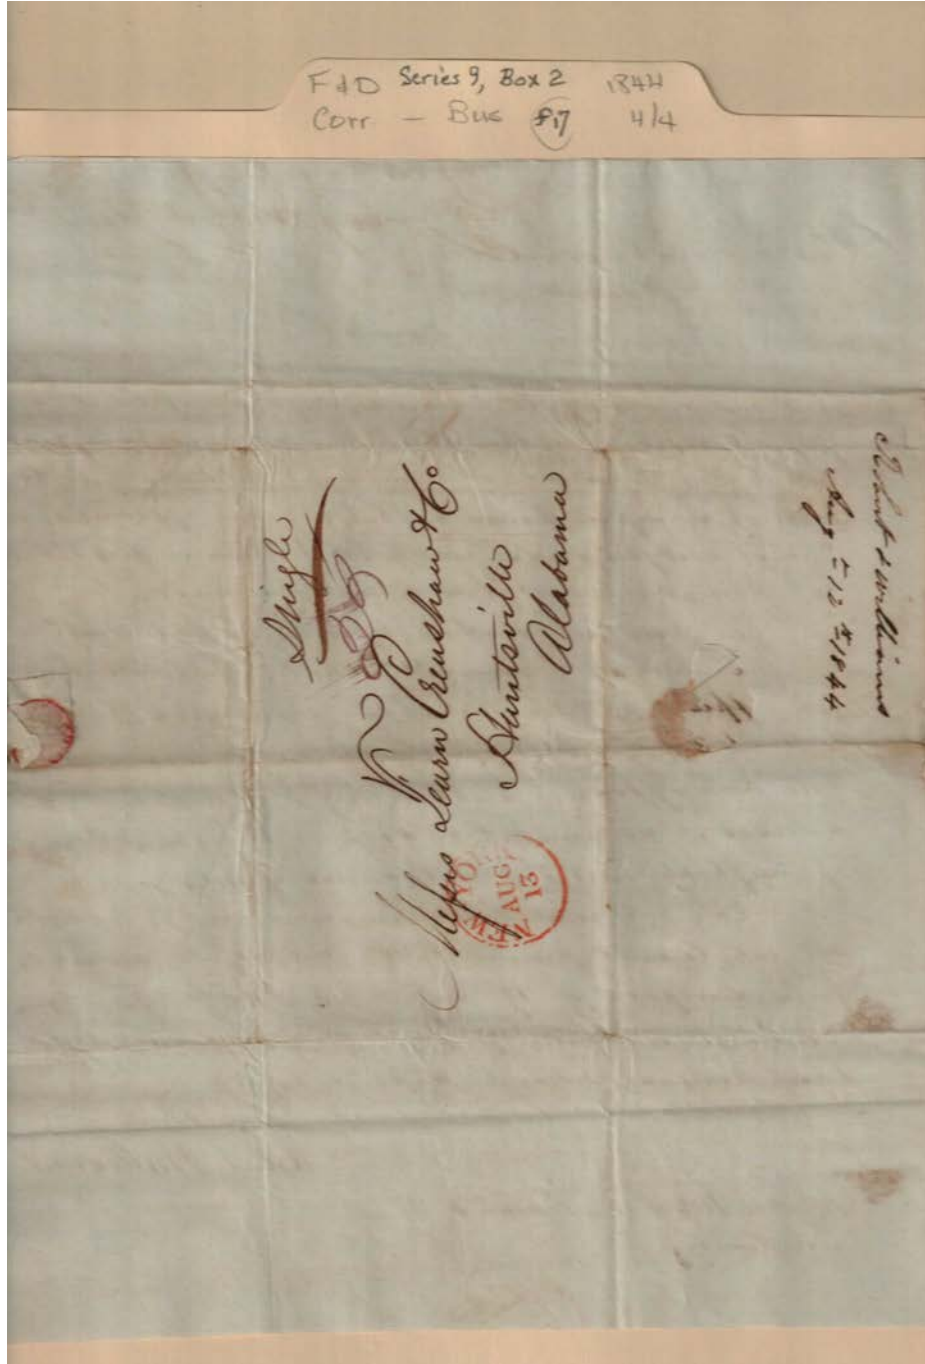 F&D Series 9, Box 2 1844
Corr - Bus f17 4/4
Single
Messrs Fearn Crenshaw & Co
Huntsville
Alabama
NEW YORK
AUG
13
& Williams
Aug 12 1844